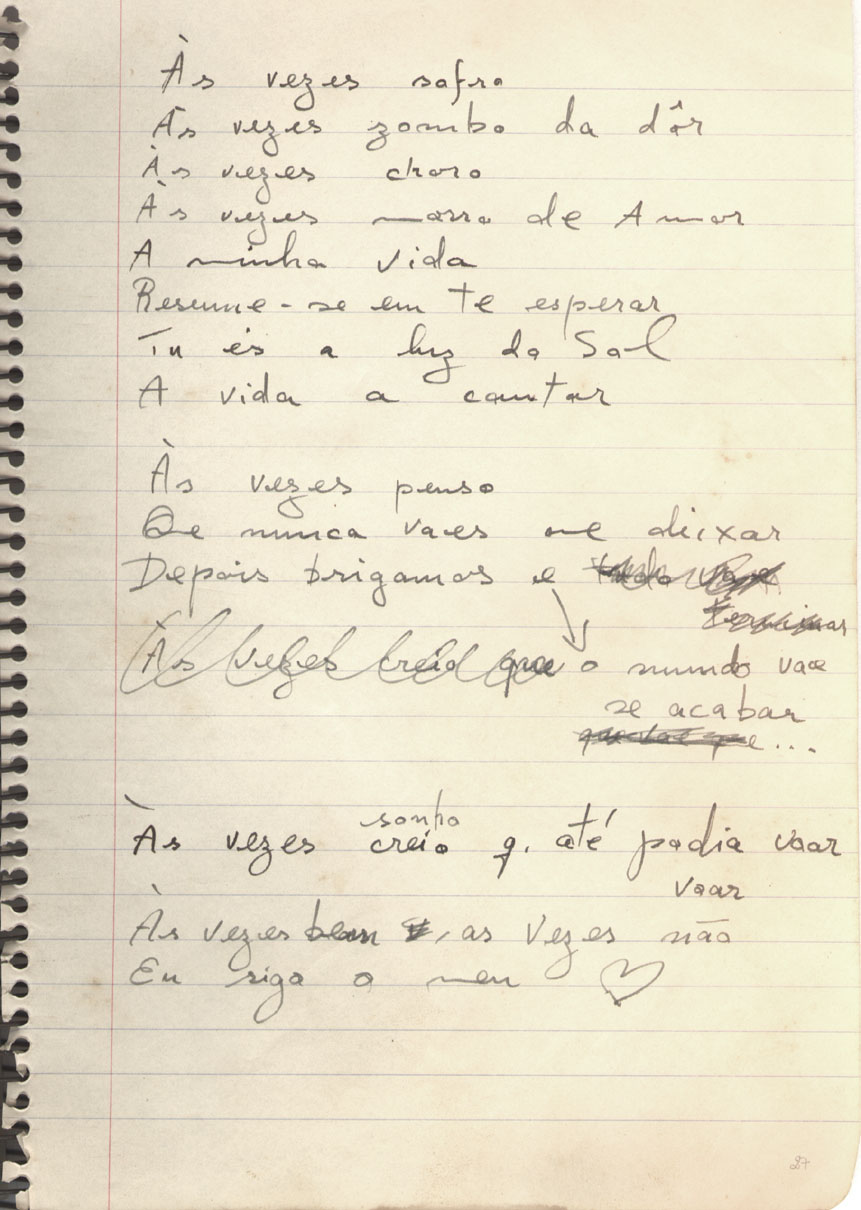 Às vezes sofro
Às vezes zombo da dôr
Às vezes choro
Às vezes morro de Amor
A minha vida
Resume-se em te esperar
Tu és a luz do Sol
A vida a cantar
Às vezes penso
Qe nunca vaes me deixar
Depois brigamos e tudo vae
terminar
Às vezes creio que o mundo vae
se acabar
que vae que e...
sonho
Às vezes creio q. até podia voar
voar
Às vezes bem, as vezes não
Eu sigo o meu ♡
27